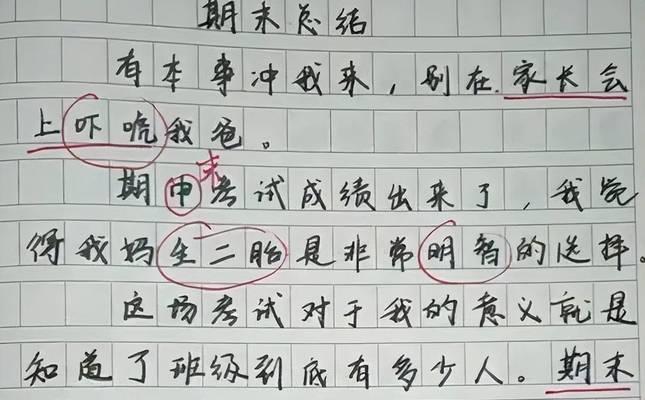 期末总结
有本事冲我来，别在家长会
上吓唬我爸。
末
期中考试成绩出来了，我觉
得我妈生二胎是非常明智的选择。
这场考试对于我的意义就是
知道了班级到底有多少人。期末